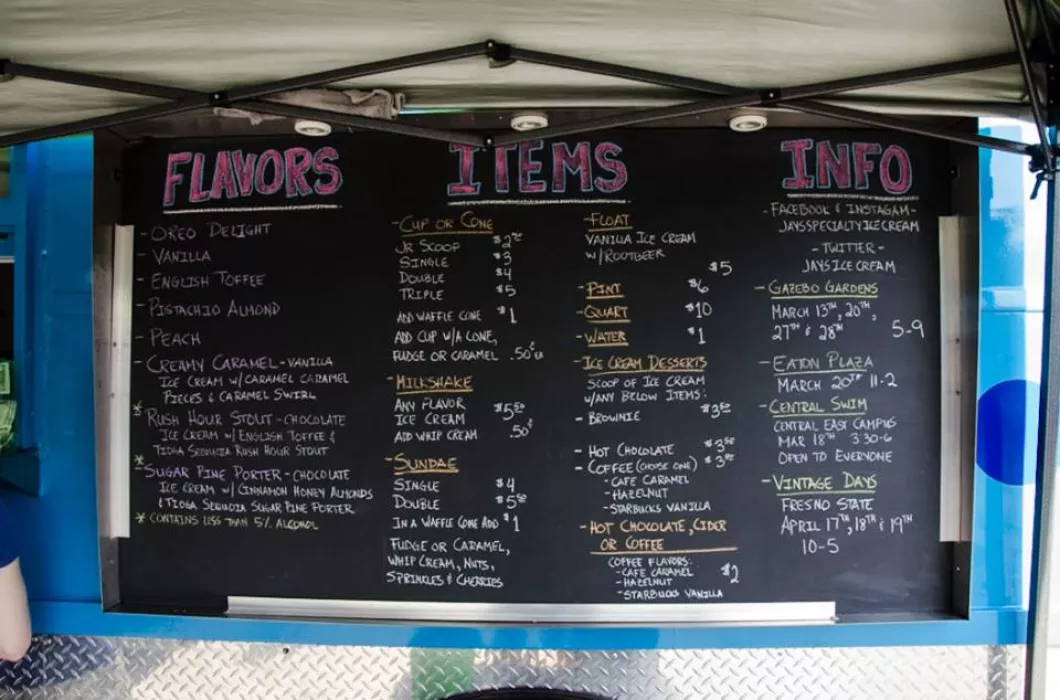 FLAVORS
- OREO DELIGHT
- VANILLA
- ENGLISH TOFFEE
- PISTACHIO ALMOND
- PEACH
- CREAMY CARAMEL - VANILLA
ICE CREAM W/ CARAMEL CARAMEL
PIECES & CARAMEL SWIRL
* RUSH HOUR STOUT - CHOCOLATE
ICE CREAM W/ ENGLISH TOFFEE &
TIOGA SEQUOIA RUSH HOUR STOUT
* - SUGAR PINE PORTER - CHOCOLATE
ICE CREAM W/ CINNAMON HONEY ALMONDS
& TIOGA SEQUOIA SUGAR PINE PORTER
* CONTAINS LESS THAN 5% ALCOHOL
ITEMS
- CUP OR CONE
JR SCOOP
SINGLE $3
DOUBLE $4
TRIPLE $5
ADD WAFFLE CONE $1
ADD CUP W/A CONE,
FUDGE OR CARAMEL .50¢ EA
- MILKSHAKE
ANY FLAVOR
ICE CREAM $5.50
ADD WHIP CREAM .50¢
- SUNDAE
SINGLE $4
DOUBLE $5.50
IN A WAFFLE CONE ADD $1
FUDGE OR CARAMEL,
WHIP CREAM, NUTS,
SPRINKLES & CHERRIES
- FLOAT
VANILLA ICE CREAM
W/ROOTBEER
$5
- PINT $6
- QUART $10
- WATER $1
- ICE CREAM DESSERTS
SCOOP OF ICE CREAM
W/ANY BELOW ITEMS:
- BROWNIE $3.50
- HOT CHOCOLATE $3.50
- COFFEE (CHOOSE ONE) $3.50
- CAFE CARAMEL
- HAZELNUT
- STARBUCKS VANILLA
- HOT CHOCOLATE, CIDER
OR COFFEE
COFFEE FLAVORS:
- CAFE CARAMEL $2
- HAZELNUT
- STARBUCKS VANILLA
INFO
- FACEBOOK & INSTAGAM -
JAYSSPECIALTYICECREAM
- TWITTER -
JAYSICECREAM
- GAZEBO GARDENS
MARCH 13TH, 20TH,
27TH & 28TH 5-9
- EATON PLAZA
MARCH 20TH 11-2
- CENTRAL SWIM
CENTRAL EAST CAMPUS
MAR 18TH 3:30-6
OPEN TO EVERYONE
- VINTAGE DAYS
FRESNO STATE
APRIL 17TH, 18TH & 19TH
10-5